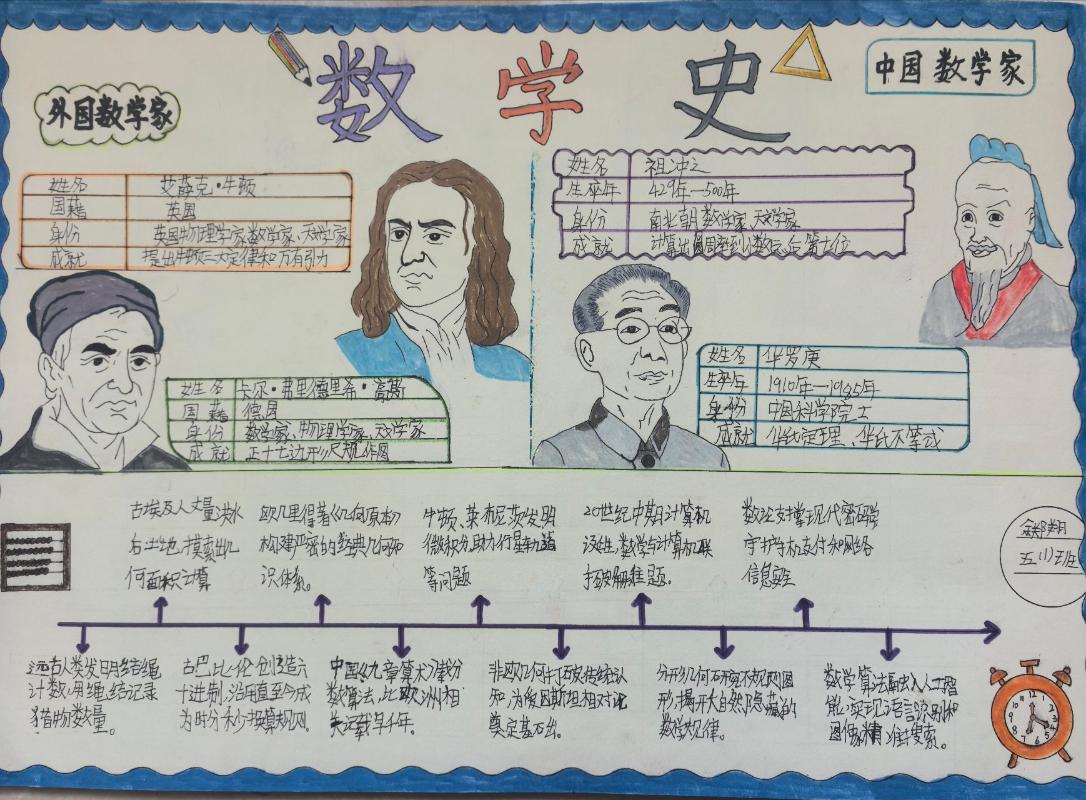 数学史
外国数学家
中国数学家
姓名 艾萨克·牛顿
国籍 英国
身份 英国物理学家、数学家、天文学家
成就 提出牛顿三大定律和万有引力
姓名 卡尔·弗里德里希·高斯
国籍 德国
身份 数学家、物理学家、天文学家
成就 正十七边形尺规作图
姓名 祖冲之
生卒年 429年—500年
身份 南北朝数学家、天文学家
成就 计算出圆周率到小数点后第七位
姓名 华罗庚
生卒年 1910年—1985年
身份 中国科学院院士
成就 华氏定理、华氏不等式
古埃及人丈量洪水
后土地,摸索出几
何面积计算
欧几里得著《几何原本》
构建严密的经典几何知
识体系。
牛顿、莱布尼茨发明
微积分,助力行星轨道
等问题
20世纪中期计算机
诞生,数学与计算机联
手破解难题。
数论支撑现代密码学
守护手机支付和网络
信息安全
五(1)班
远古人类发明结绳
计数,用绳结记录
猎物数量。
古巴比伦创造六
十进制,沿用直至今成
为时分秒换算规则
中国《九章算术》分
数算法,比欧洲相
关记载早千年。
非欧几何打破传统认
知,为爱因斯坦相对论
奠定基石。
分形几何研究不规则图
形,揭开大自然隐藏的
数学规律。
数学算法融入人工智
能,实现语言识别和
图像精准搜索。